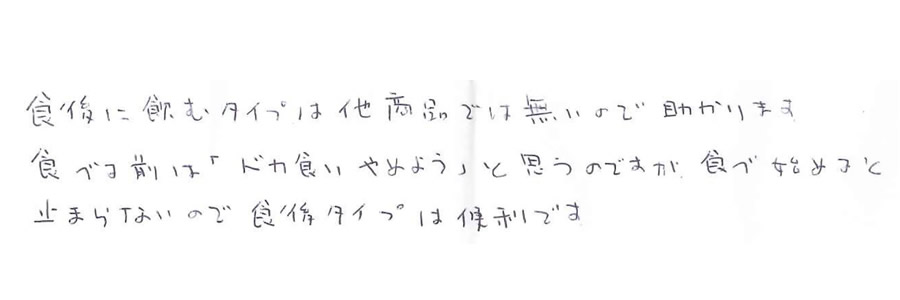 食後に飲むタイプは他商品では無いので助かります
食べる前は「ドカ食いやめよう」と思うのですが、食べ始めると
止まらないので食後タイプは便利です